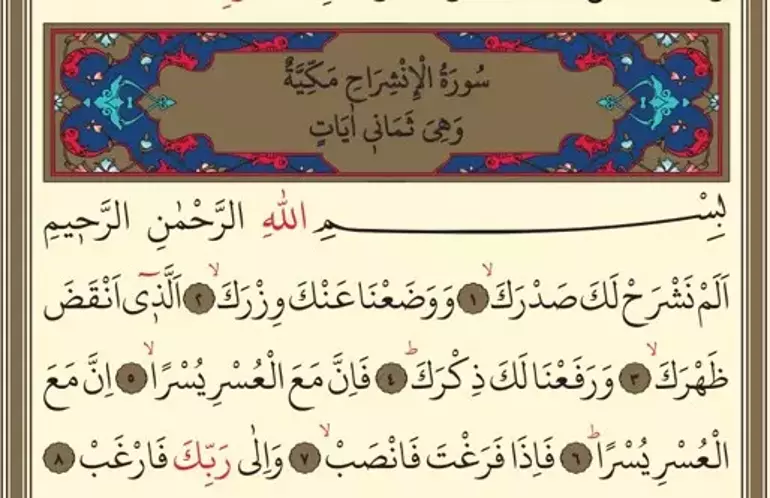 سُورَةُ الْاِنْشِرَاحِ مَكِّيَّةٌ
وَهِيَ ثَمَانِي اٰيَاتٍ
بِسْمِ اللّٰهِ الرَّحْمٰنِ الرَّح۪يمِ
اَلَمْ نَشْرَحْ لَكَ صَدْرَكَۙ ﴿١﴾ وَوَضَعْنَا عَنْكَ وِزْرَكَۙ ﴿٢﴾ اَلَّذ۪ٓي اَنْقَضَ
ظَهْرَكَۙ ﴿٣﴾ وَرَفَعْنَا لَكَ ذِكْرَكَۜ ﴿٤﴾ فَاِنَّ مَعَ الْعُسْرِ يُسْرًاۙ ﴿٥﴾ اِنَّ مَعَ
الْعُسْرِ يُسْرًاۜ ﴿٦﴾ فَاِذَا فَرَغْتَ فَانْصَبْۙ ﴿٧﴾ وَاِلٰى رَبِّكَ فَارْغَبْ ﴿٨﴾